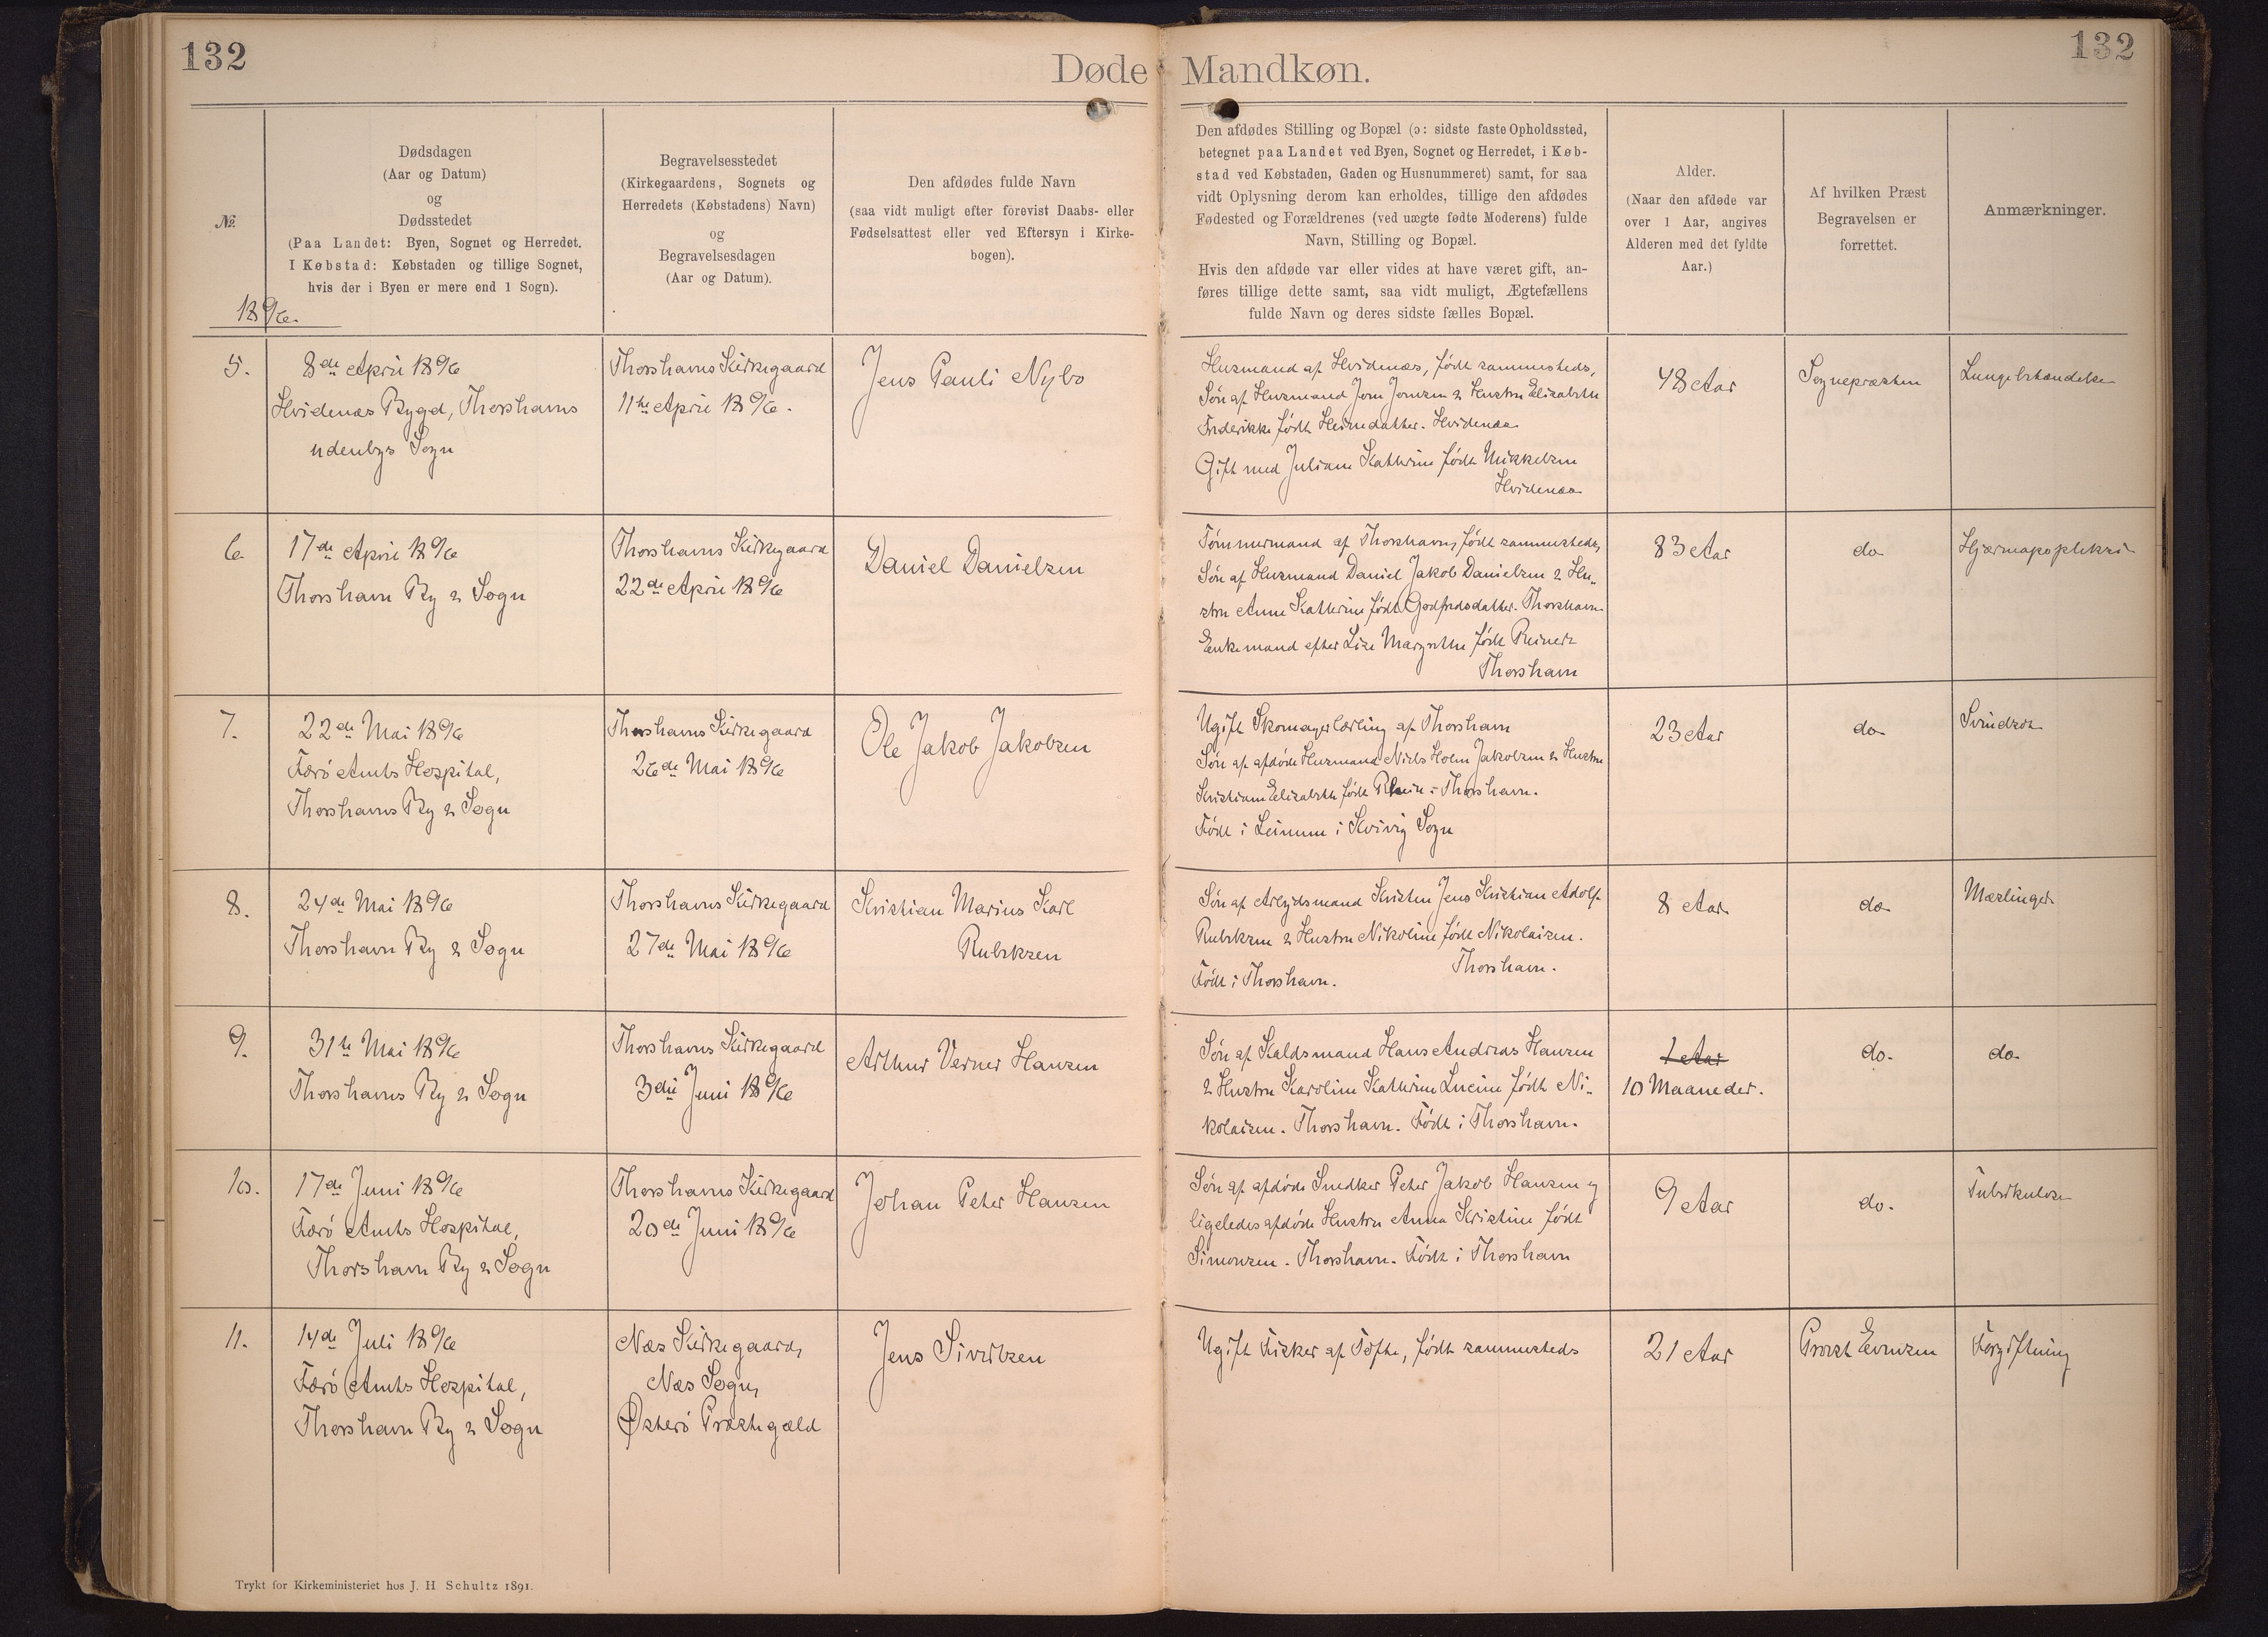 132
Døde Mandkøn.
132
№
1896.
Dødsdagen
(Aar og Datum)
og
Dødsstedet
(Paa Landet: Byen, Sognet og Herredet.
I Købstad: Købstaden og tillige Sognet,
hvis der i Byen er mere end 1 Sogn).
Begravelsesstedet
(Kirkegaardens, Sognets og
Herredets (Købstadens) Navn)
og
Begravelsesdagen
(Aar og Datum).
Den afdødes fulde Navn
(saa vidt muligt efter forevist Daabs- eller
Fødselsattest eller ved Eftersyn i Kirke-
bogen).
Den afdødes Stilling og Bopæl (ɔ: sidste faste Opholdssted,
betegnet paa Landet ved Byen, Sognet og Herredet, i Køb-
stad ved Købstaden, Gaden og Husnummeret) samt, for saa
vidt Oplysning derom kan erholdes, tillige den afdødes
Fødested og Forældrenes (ved uægte fødte Moderens) fulde
Navn, Stilling og Bopæl.
Hvis den afdøde var eller vides at have været gift, an-
føres tillige dette samt, saa vidt muligt, Ægtefællens
fulde Navn og deres sidste fælles Bopæl.
Alder.
(Naar den afdøde var
over 1 Aar, angives
Alderen med det fyldte
Aar.)
Af hvilken Præst
Begravelsen er
forrettet.
Anmærkninger.
5.
8de April 1896
Hvidenæs Bygd, Thorshavns
udenbys Sogn
Thorshavns Kirkegaard
11te April 1896.
Jens Pauli Nybo
Husmand af Hvidenæs, født sammesteds,
Søn af Husmand Joen Joensen & Hustru Elisabeth
Frederikke født Heinedatter. Hvidenæs
Gift med Juliane Kathrine født Mikkelsen
Hvidenæs
48 Aar
Sognepræsten
Lungebetændelse
6.
17de April 1896
Thorshavn By & Sogn
Thorshavns Kirkegaard
22de April 1896
Daniel Danielsen
Tømmermand af Thorshavn, født sammesteds,
Søn af Husmand Daniel Jakob Danielsen & Hu-
stru Anne Kathrine født Godfredsdatter. Thorshavn
Enkemand efter Lise Margrethe født Reinert
Thorshavn
83 Aar
do
Hjærneapopleksi
7.
22de Mai 1896
Færø Amts Hospital,
Thorshavns By & Sogn
Thorshavns Kirkegaard
26de Mai 1896
Ole Jakob Jakobsen
Ugift Skomagerlærling af Thorshavn
Søn af afdøde Husmand Niels Holm Jakobsen & Hustru
Kristiane Elisabeth født i Thorshavn.
Født i Leinum i Kvivig Sogn
23 Aar
do
Svindsot
8.
24de Mai 1896
Thorshavn By & Sogn
Thorshavns Kirkegaard
27de Mai 1896
Kristian Marius Karl
Rubeksen
Søn af Arbejdsmand Kristen Jens Kristian Adolf
Rubeksen & Hustru Nikoline født Nikolaisen.
Thorshavn.
Født i Thorshavn.
8 Aar
do
Mæslinger
9.
31te Mai 1896
Thorshavns By & Sogn
Thorshavns Kirkegaard
3die Juni 1896
Arthur Verner Hansen
Søn af Kaldsmand Hans Andreas Hansen
& Hustru Karoline Kathrine Lucine født Ni-
kolaisen. Thorshavn. Født i Thorshavn.
1 Aar
10 Maaneder.
do.
do
10.
17de Juni 1896
Færø Amts Hospital,
Thorshavn By & Sogn
Thorshavns Kirkegaard
20de Juni 1896
Johan Peter Hansen
Søn af afdøde Snedker Peter Jakob Hansen og
ligeledes afdøde Hustru Anna Kristine født
Simonsen. Thorshavn. Født i Thorshavn
9 Aar
do.
Tuberkulose
11.
14de Juli 1896
Færø Amts Hospital,
Thorshavn By & Sogn
Næs Kirkegaard,
Næs Sogn,
Østerø Præstegæld
Jens Sivertsen
Ugift Fisker af Tofte, født sammesteds
21 Aar
Provst Evensen
Forgiftning
Trykt for Kirkeministeriet hos J. H Schultz 1891.